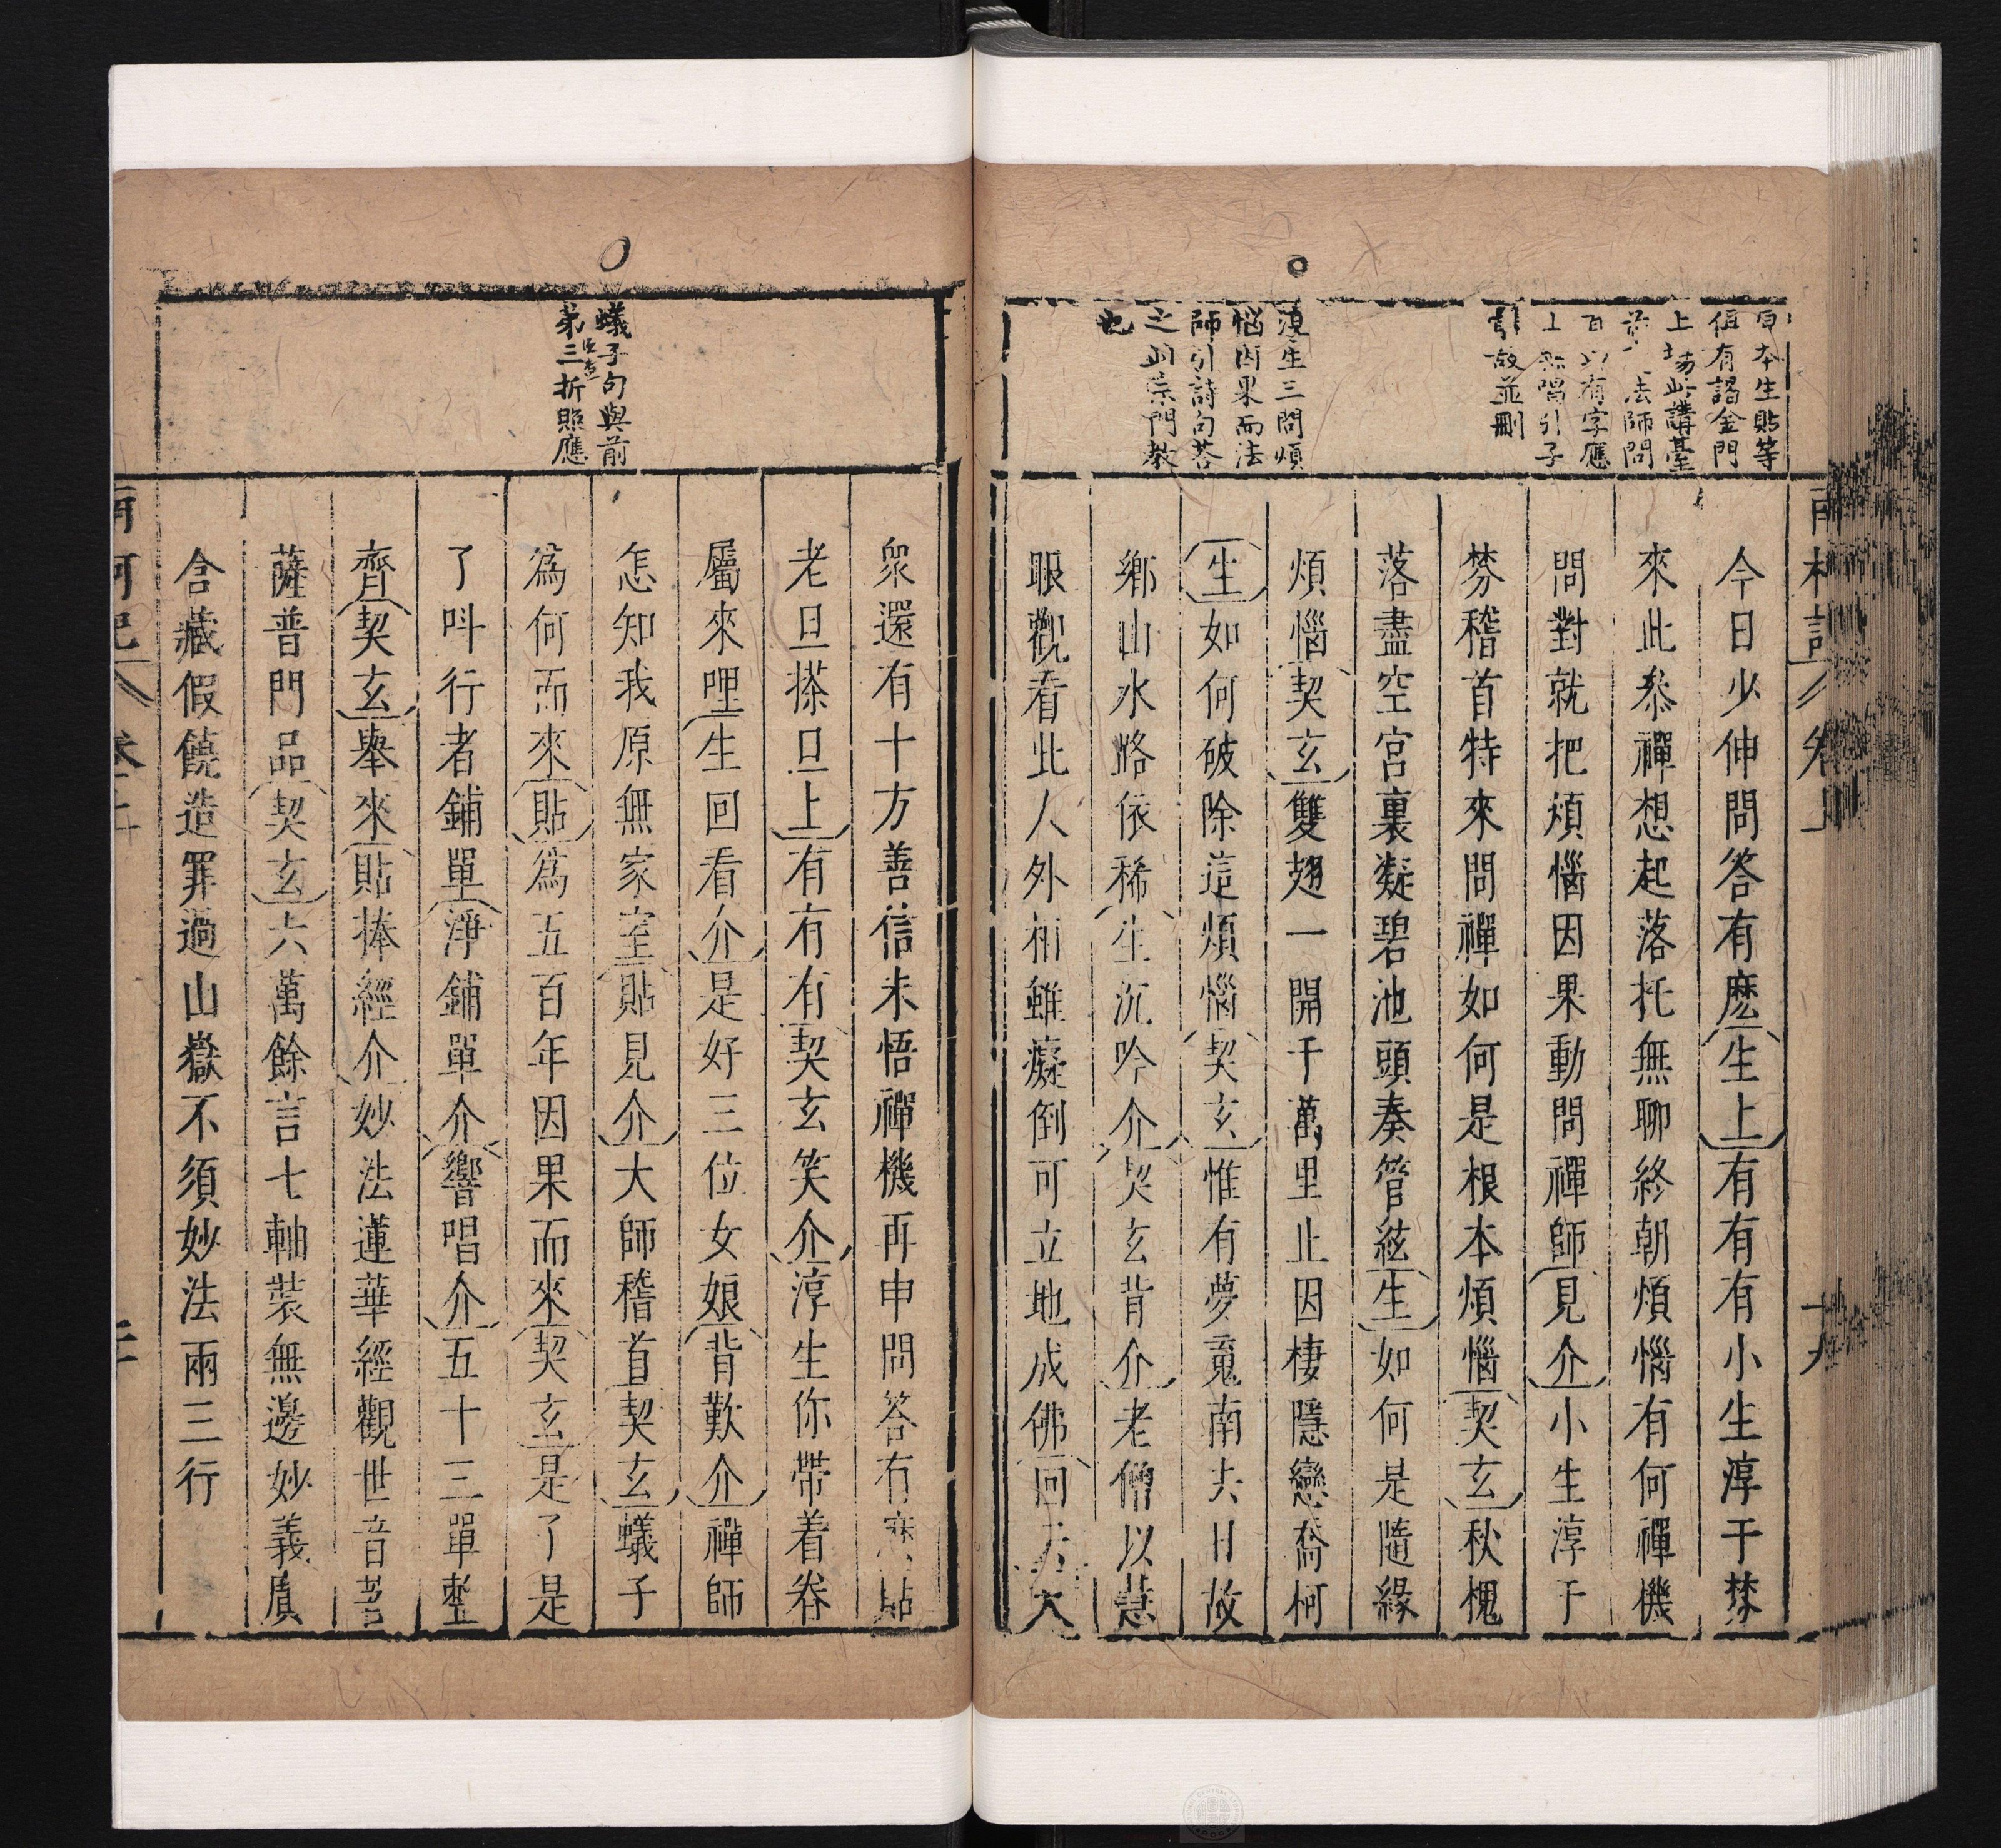 原本生貼等
俱有謁金門
上場此講臺
法師問
有字應
上 唱引子
引故並刪
淳生三問煩
惱因果而法
師引詩句荅
之則宗門教
也
今日少伸問答有麽生上有有有小生淳于棼
來此叅禪想起落托無聊終朝煩惱有何禪機
問對就把煩惱因果動問禪師見介小生淳于
棼稽首特來問禪如何是根本煩惱契玄秋槐
落盡空宮裏凝碧池頭奏管絃生如何是隨緣
煩惱契玄雙翅一開千萬里止因棲隱戀喬柯
生如何破除這煩惱契玄惟有夢䰟南去日故
鄉山水路依稀生沉吟介契玄背介老僧以慧
眼觀看此人外相雖癡倒可立地成佛回介大
蟻子句與前
第三折照應
衆還有十方善信未悟禪機再申問答有麽貼
老旦搽旦上有有有契玄笑介淳生你帶着眷
屬來哩生回看介是好三位女娘背歎介禪師
怎知我原無家室貼見介大師稽首契玄蟻子
爲何而來貼爲五百年因果而來契玄是了是
了呌行者鋪單淨鋪單介響唱介五十三單整
齊契玄舉來貼捧經介妙法蓮華經觀世音菩
薩普門品契玄六萬餘言七軸裝無邊妙義廣
含藏假饒造罪過山嶽不須妙法兩三行